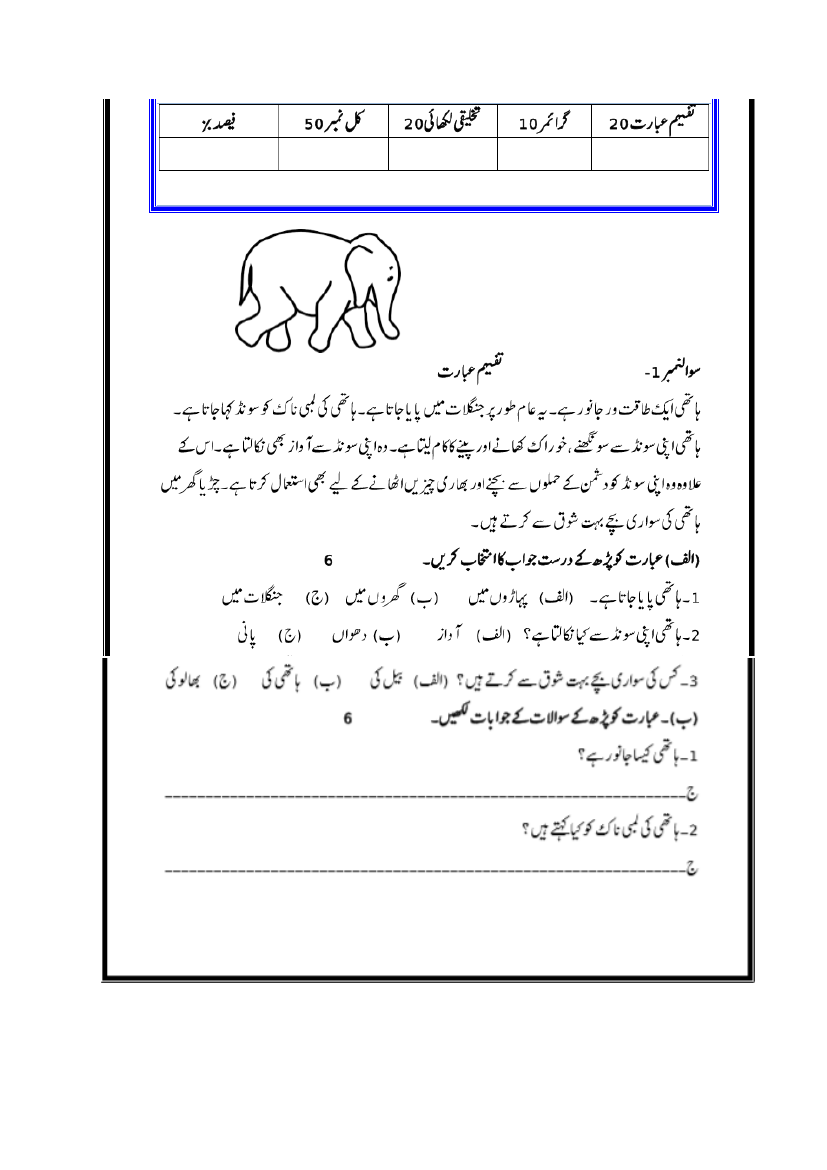 تفہیم عبارت 20 گرائمر 10 تخلیقی لکھائی 20 کل نمبر 50 فیصد %
سوالنمبر 1- تفہیم عبارت
ہاتھی ایک طاقت ور جانور ہے۔ یہ عام طور پر جنگلات میں پایا جاتا ہے۔ ہاتھی کی لمبی ناک کو سونڈ کہا جاتا ہے۔
ہاتھی اپنی سونڈ سے سونگھنے، خوراک کھانے اور پینے کا کام لیتا ہے۔ وہ اپنی سونڈ سے آواز بھی نکالتا ہے۔ اس کے
علاوہ وہ اپنی سونڈ کو دشمن کے حملوں سے بچنے اور بھاری چیزیں اٹھانے کے لیے بھی استعمال کرتا ہے۔ چڑیا گھر میں
ہاتھی کی سواری بچے بہت شوق سے کرتے ہیں۔
(الف) عبارت کو پڑھ کے درست جواب کا انتخاب کریں۔ 6
1۔ ہاتھی پایا جاتا ہے۔ (الف) پہاڑوں میں (ب) گھروں میں (ج) جنگلات میں
2۔ ہاتھی اپنی سونڈ سے کیا نکالتا ہے؟ (الف) آواز (ب) دھواں (ج) پانی
3۔ کس کی سواری بچے بہت شوق سے کرتے ہیں؟ (الف) بیل کی (ب) ہاتھی کی (ج) بھالو کی
(ب)۔ عبارت کو پڑھ کے سوالات کے جوابات لکھیں۔ 6
1۔ ہاتھی کیسا جانور ہے؟
ج ________________________________
2۔ ہاتھی کی لمبی ناک کو کیا کہتے ہیں؟
ج ________________________________